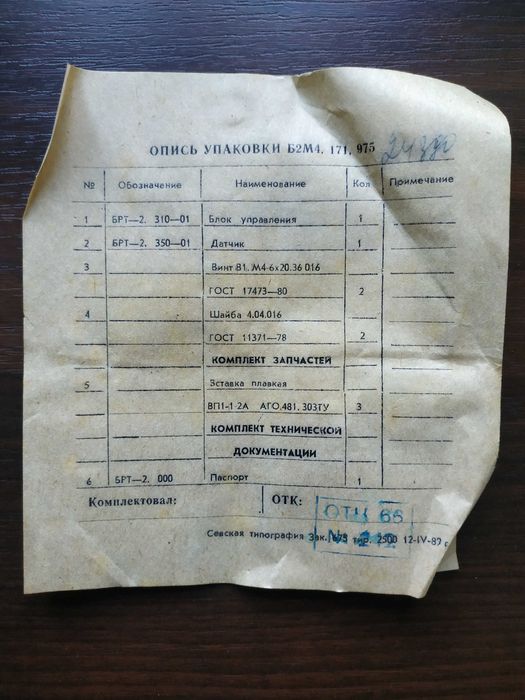 ОПИСЬ УПАКОВКИ Б2М4. 171. 975
№ Обозначение Наименование Кол Примечание
1 БРТ—2. 310—01 Блок управления 1
2 БРТ—2. 350—01 Датчик 1
3 Винт В1. М4-6х20.36 016
ГОСТ 17473—80 2
4 Шайба 4.04.016
ГОСТ 11371—78 2
КОМПЛЕКТ ЗАПЧАСТЕЙ
5 Зставка плавкая
ВП1-1 2А АГО.481.303ТУ 3
КОМПЛЕКТ ТЕХНИЧЕСКОЙ
ДОКУМЕНТАЦИИ
6 БРТ—2. 000 Паспорт 1
Комплектовал: ОТК:
ОТЦ 66
№
Севская типография Зак. 675 тир. 2500 12-IV-89 г.